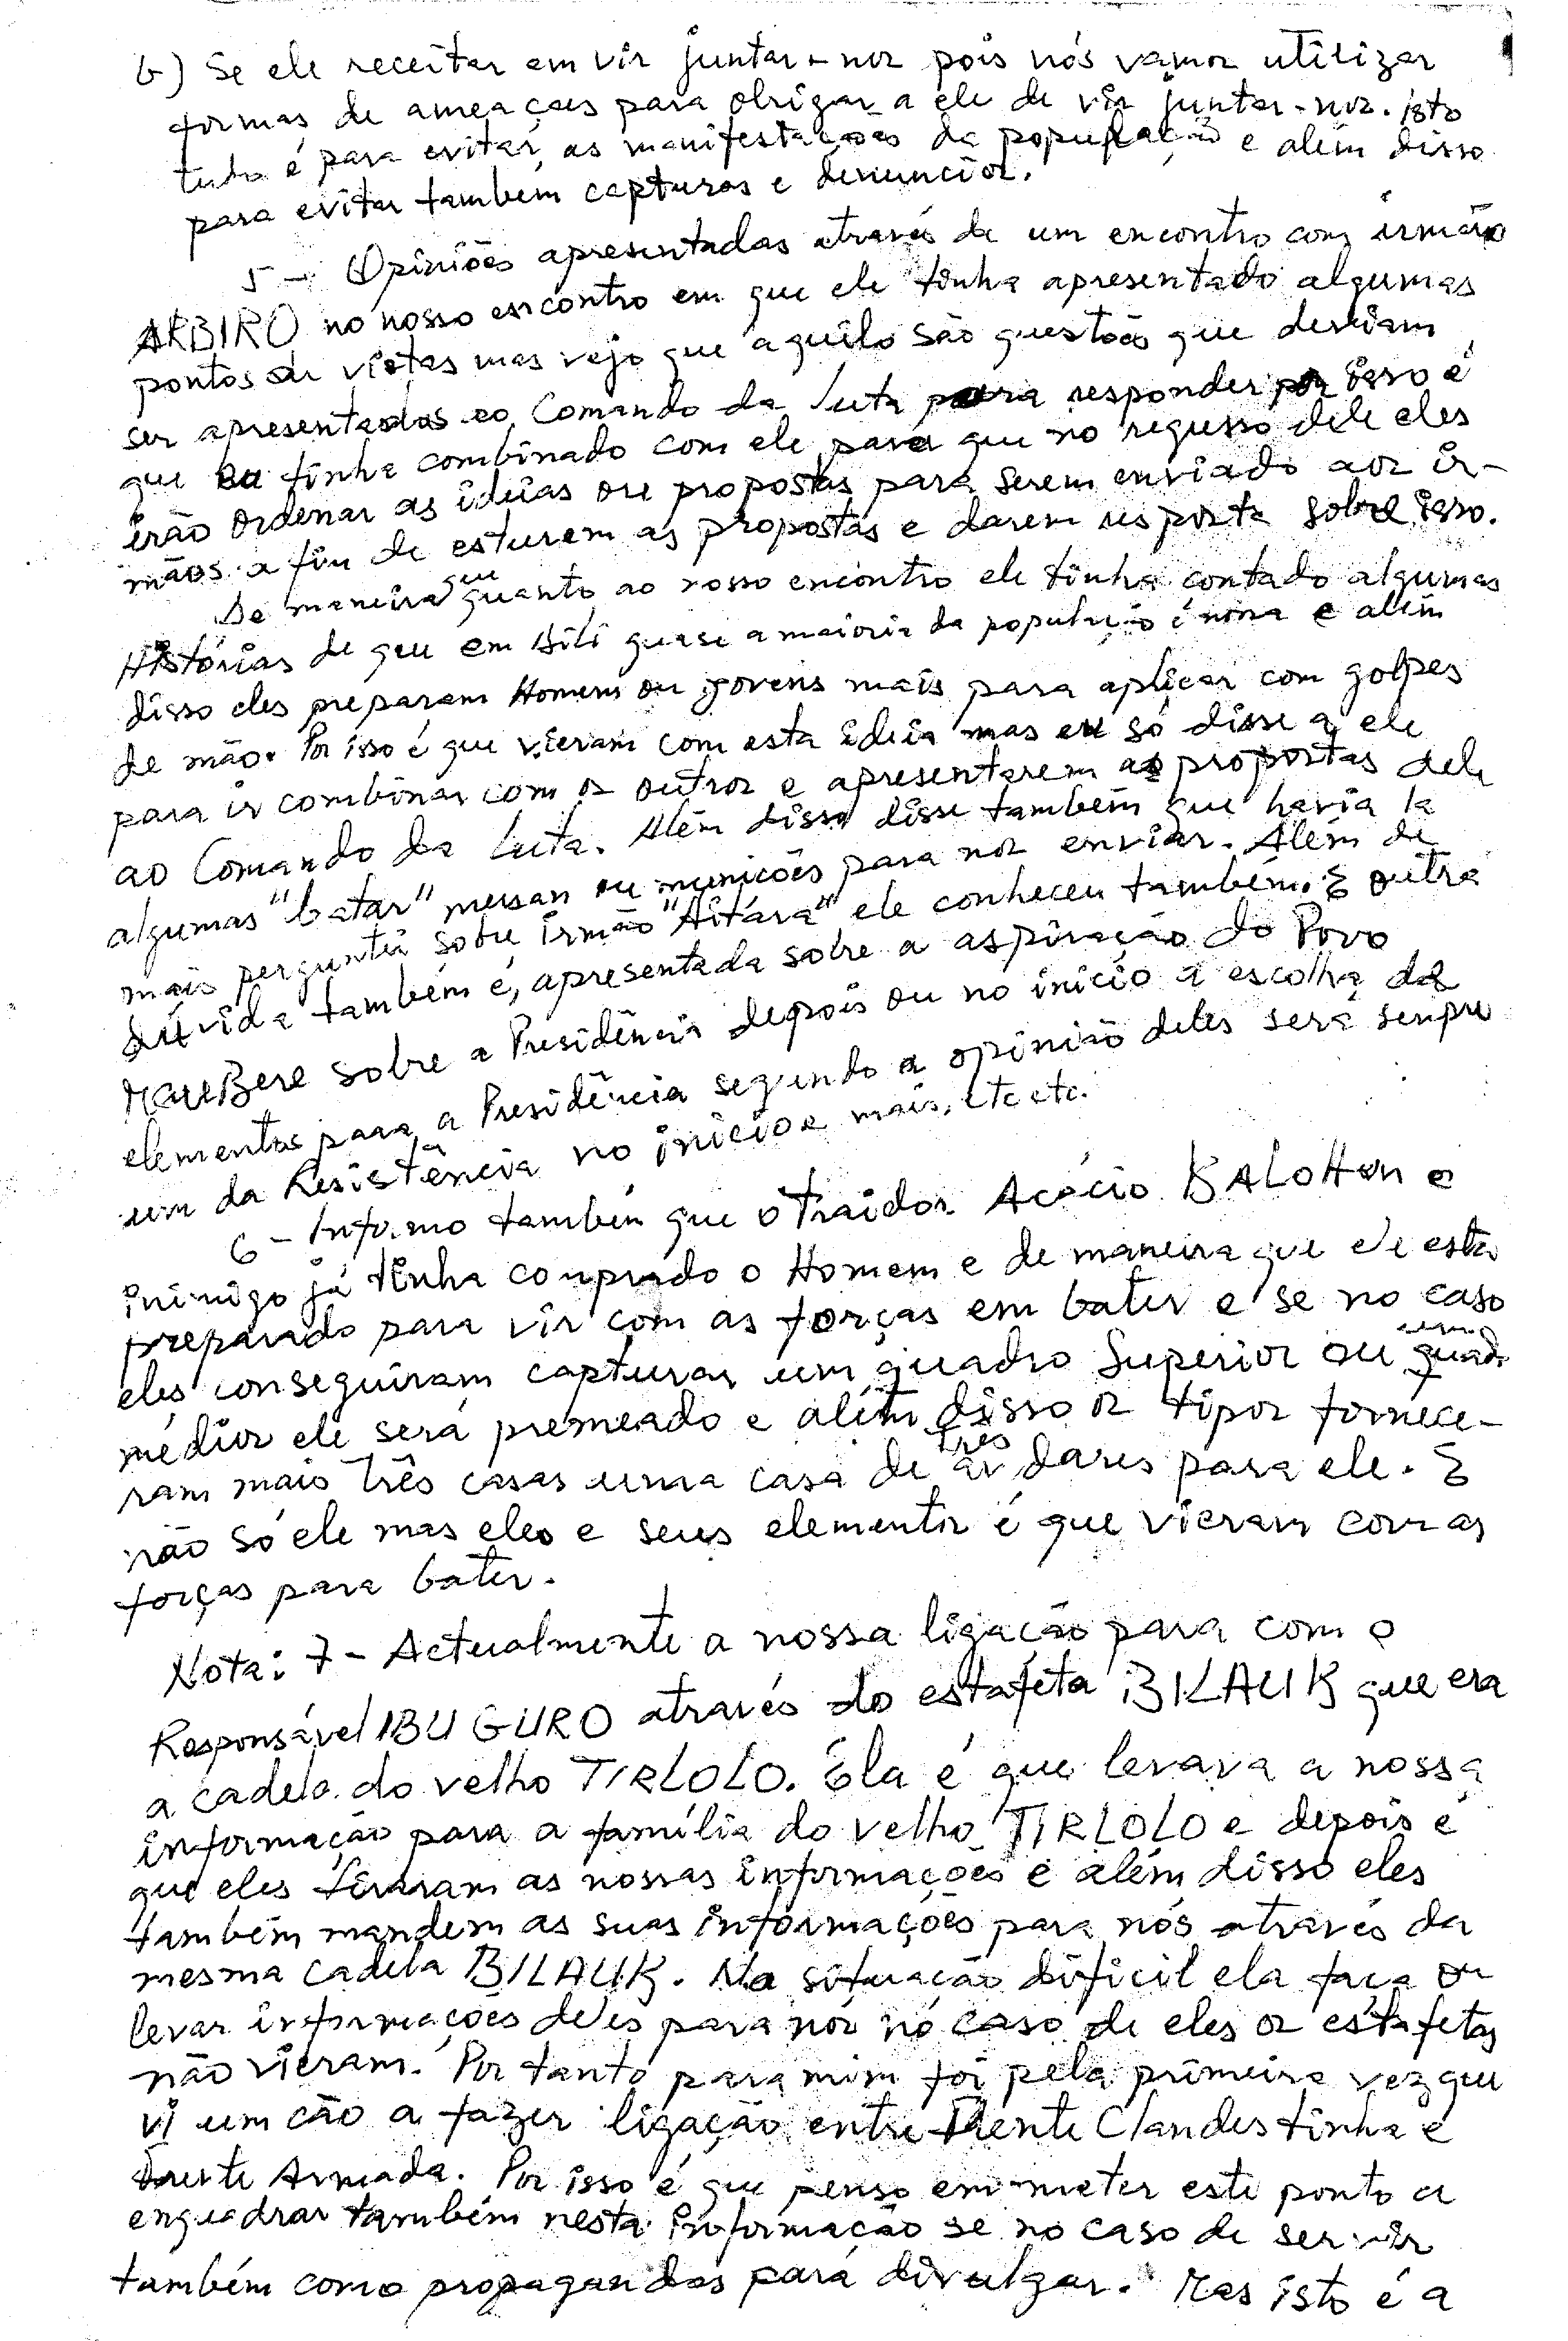 b) Se ele receitar em vir juntar-nos pois nós vamos utilizar
formas de ameaças para obrigar a ele de vir juntar-nos. isto
tudo é para evitar as manifestações da população e além disso
para evitar também capturas e denuncios.
5 - Opiniões apresentadas através de um encontro com irmão
ARBIRO no nosso encontro em que ele tinha apresentado algumas
pontos de vistas mas vejo que aquilo são questões que deviam
ser apresentadas ao Comando da luta para responder por isso é
que eu tinha combinado com ele para que no regresso dele eles
irão ordenar as idéias ou propostas para serem enviado aos ir-
mãos a fim de esturem as propostas e darem resposta sobre isso.
De maneira que quanto ao nosso encontro ele tinha contado algumas
Histórias de que em Dili quase a maioria da população é nossa e além
disso eles preparam Homens ou jovens mais para aplicar com golpes
de mão. Por isso é que vieram com esta ideia mas eu só disse a ele
para ir combinar com os outros e apresentarem as propostas dele
ao Comando da Luta. Além disso disse também que havia la
algumas "batar" mussan ou municões para nos enviar. Além de
mais perguntei sobre irmão "Aitara" ele conheceu também. E outra
dúvida também é, apresentada sobre a aspiração do Povo
MauBere sobre a Presidência depois ou no inicio a escolha de
elementos para a Presidência segundo a opinião deles será sempre
um da Resistência no inicio e mais, etc etc.
6 - Informo também que o Traidor Acácio BALOHan e
inimigo já tinha comprado o Homem e de maneira que ele está
preparado para vir com as forças em bater e se no caso
eles conseguiram capturar um quadro Superior ou um quad.
médior ele será premeado e além disso os tipos fornece-
ram mais três casas uma casa de três andares para ele. E
não só ele mas eles e seus elementos é que vieram com as
forças para bater.
Nota: 7 - Actualmente a nossa ligação para com o
Responsável IBU GURO através do estafeta BILAUK que era
a cadela do velho TIRLOLO. Ela é que levava a nossa
informação para a família do velho TIRLOLO e depois é
que eles tiraram as nossas informações e além disso eles
também mandem as suas informações para nós através da
mesma cadela BILAUK. Na situação dificil ela faca ou
levar informações deles para nós no caso de eles os estafetas
não vieram. Por tanto para mim foi pela primeira vez que
vi um cão a fazer ligação entre Frente Clandestinha e
Frente Armada. Por isso é que penso em meter este ponto a
enquadrar também nesta informação se no caso de servir
também como propagandas para divulgar. Mas isto é a